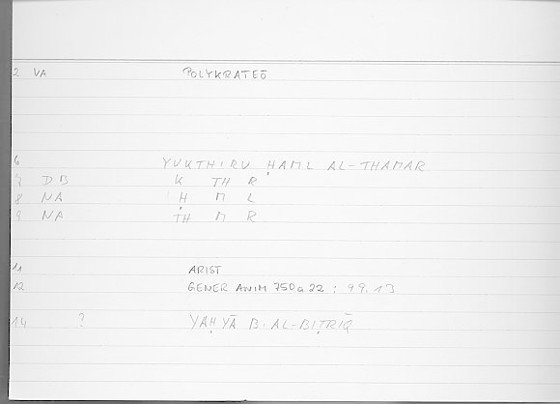 2 VA POLYKRATEŌ
6 YUKTHIRU ḤAML AL-THAMAR
7 DB K TH R
8 NA Ḥ M L
9 NA TH M R
11 ARIST
12 GENER ANIM 750a22 : 99,13
14 ? YAḤYĀ B. AL-BIṬRĪQ